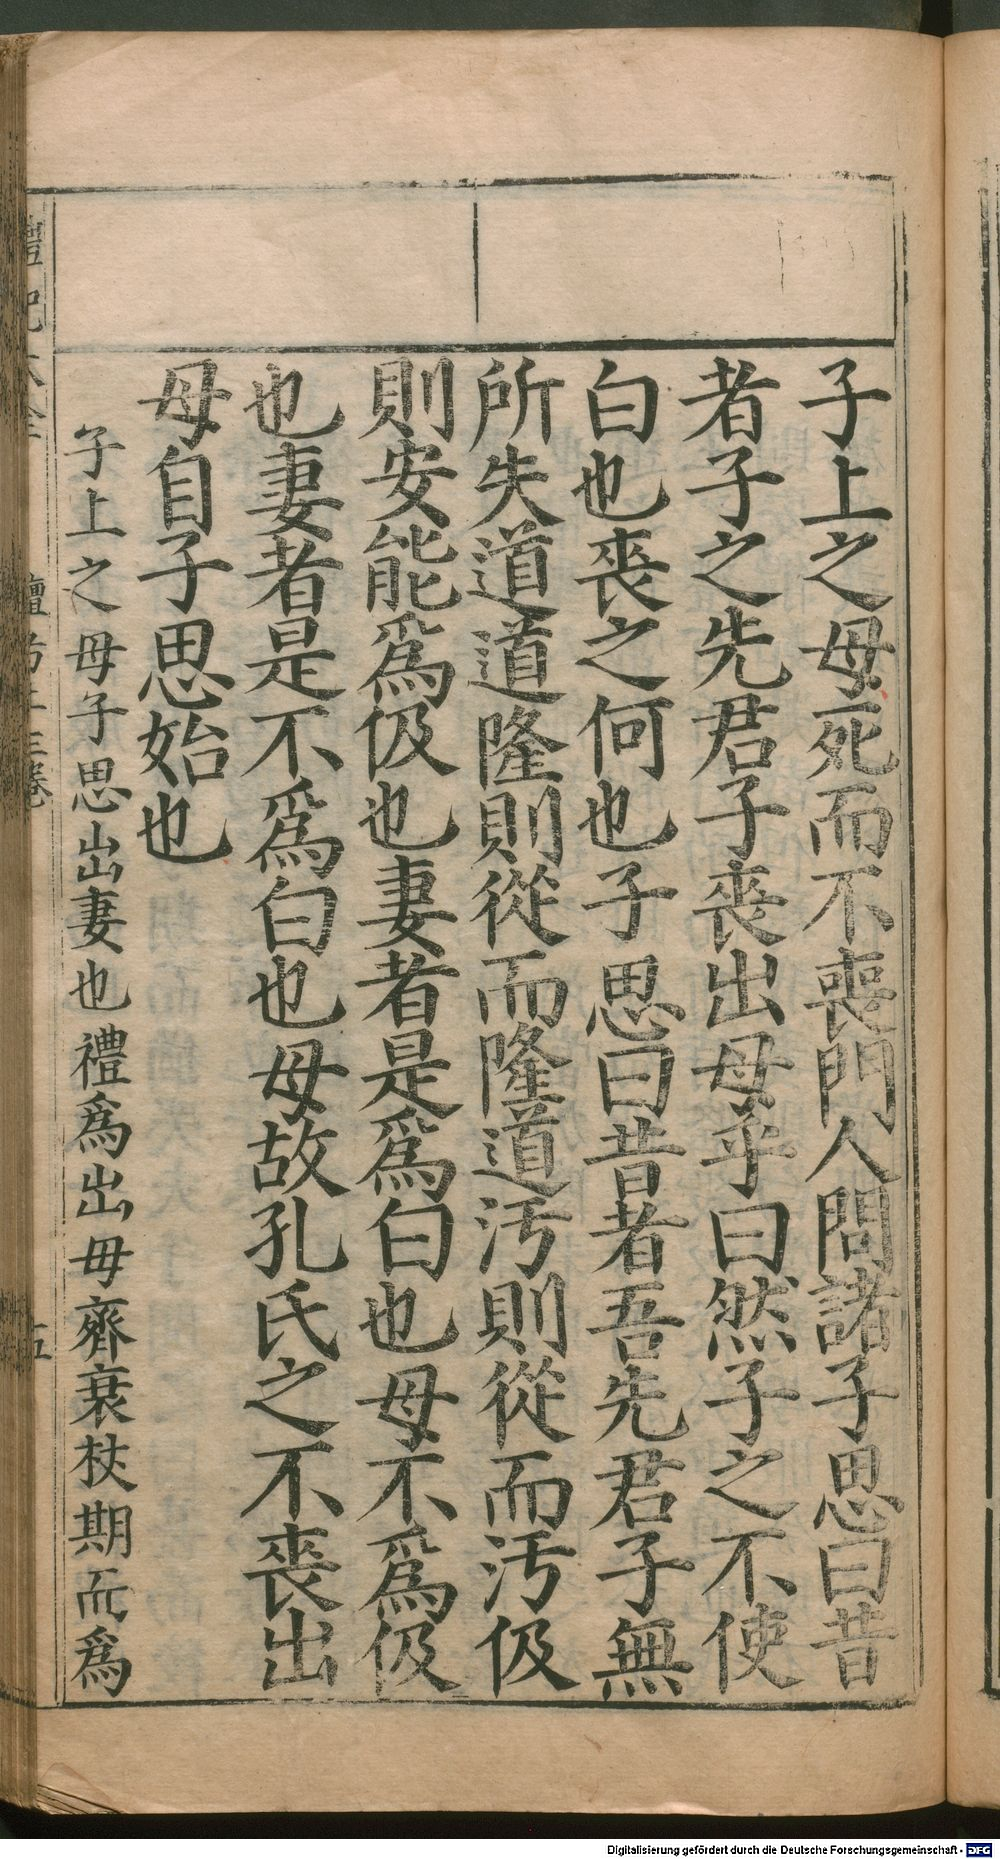 子上之母死而不喪門人問諸子思曰昔
者子之先君子喪出母乎曰然子之不使
白也喪之何也子思曰昔者吾先君子無
所失道道隆則從而隆道汚則從而汚伋
則安能爲伋也妻者是爲白也母不爲伋
也妻者是不爲白也母故孔氏之不喪出
母自子思始也
子上之母子思出妻也禮爲出母齊衰杖期而爲
檀弓上三卷
五
Digitalisierung gefördert durch die Deutsche Forschungsgemeinschaft - DFG